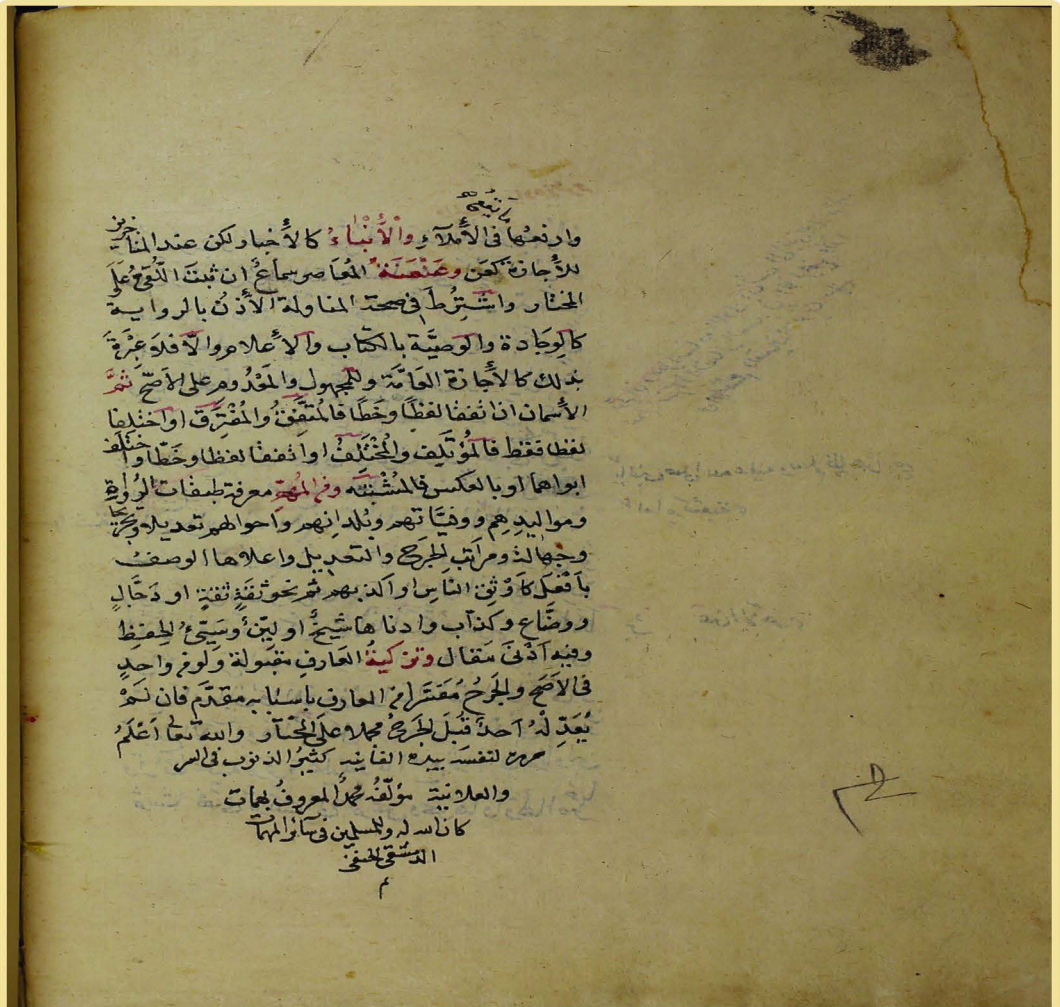 ما يقع
وارفعها في الأملاء والأنباء كالأخبار لكن عند المتأخرين
للأجازة كعن وعنعنة المعاصر سماع ان ثبت اللقي على
المختار واشترط في صحة المناولة الأذن بالرواية
كالوجادة والوصية بالكتاب والأعلام والا فلا عبرة
بذلك كالأجازة العامة وللمجهول والمعدوم على الأصح ثم
الأسمان ان اتفقا لفظا وخطا فالمتفق والمفترق او اختلفا
لفظا فقط فالمؤتلف والمختلف او اتفقا لفظا وخطا واختلف
ابواهما او بالعكس فالمتشبته ومن المهم معرفة طبقات الرواة
ومواليدهم ووفياتهم وبلدانهم واحوالهم تعديلا وتجريحا
وجهالة ومراتب الجرح والتعديل واعلاها الوصف
بأفعل كاوثق الناس او اكذبهم ثم نحو ثقة ثقة او دجال
ووضاع وكذاب وادناها شيخ او لين او سيئ الحفظ
وفيه ادنى مقال وتزكية العارف مقبولة ولو من واحد
في الأصح والجرح مفسرا من العارف باسبابه مقدم فان لم
يعدله احد قبل الجرح مجملا على المختار والله تعالى أعلم
حرره لنفسه بيده الفانيه كثير الذنوب في السر
والعلانية مؤلفه محمد المعروف بهمات
كان الله له وللمسلمين في سائر المهمات
الدمشقي الحنفي
م